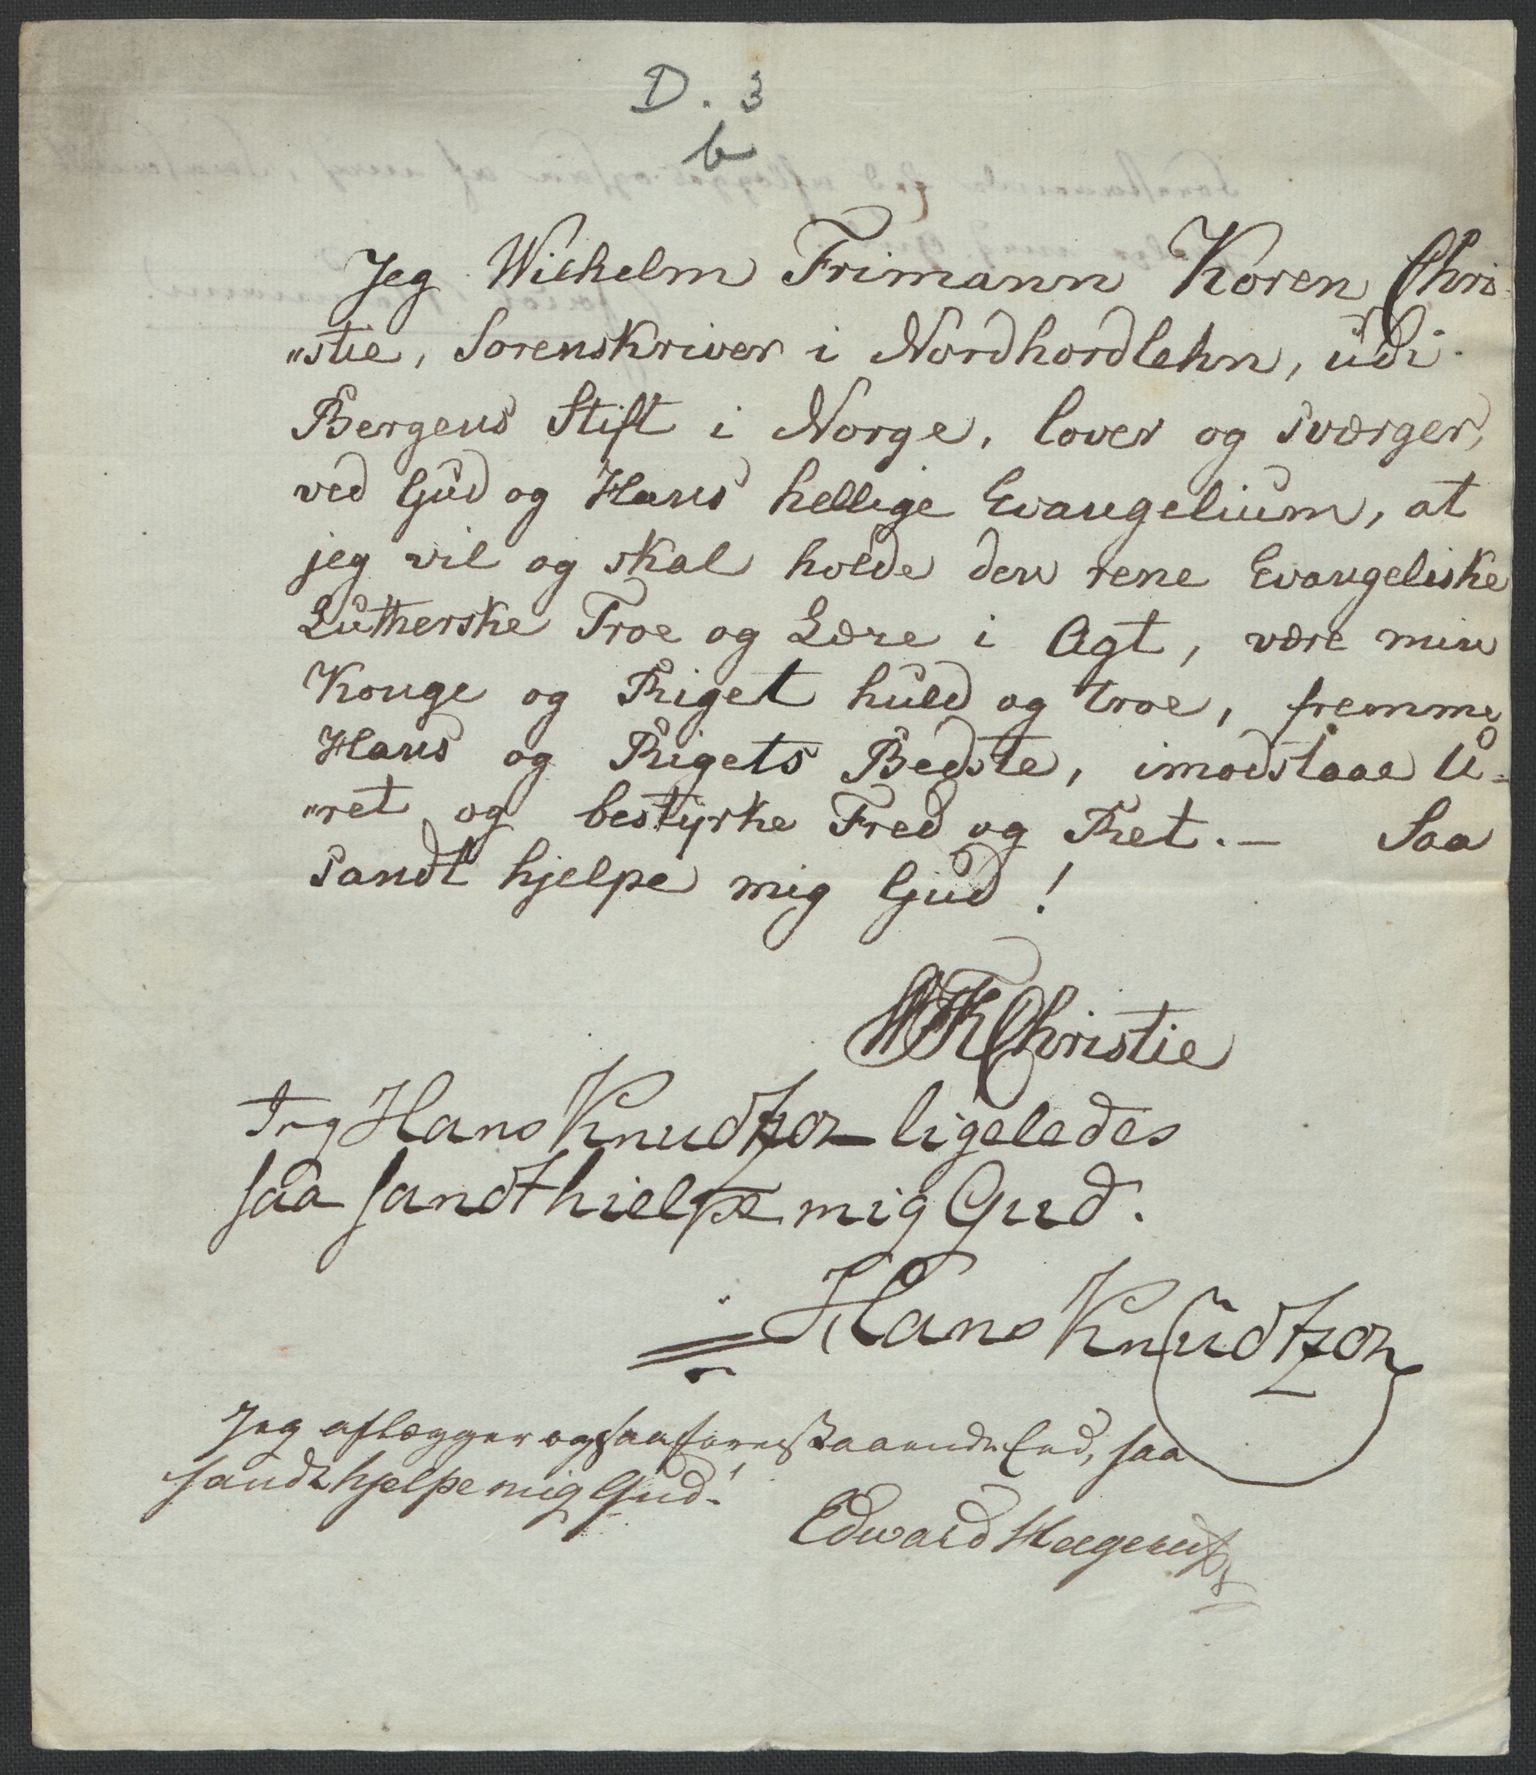 D. 3
b
Jeg Wilhelm Frimann Koren Chri
„stie, Sorenskriver i Nordhordlehn, udi
Bergens Stift i Norge, lover og sværger,
ved Gud og Hans hellige Evangelium, at
jeg vil og skal holde den rene Evangeliske
Lutherske Troe og Lære i Agt, være min
Konge og Riget huld og troe, fremme
Hans og Rigets Bedste, imodstaae U-
„ret og bestyrke Fred og Ret. — Saa
sandt hjelpe mig Gud!
WFKChristie
Jeg Hans Knudtzon ligeledes
saa sandt hielpe mig Gud.
Hans Knudtzon
Jeg aflægger ogsaa forestaaende Eed, saa
sandt hjelpe mig Gud!
Edward Hagerup